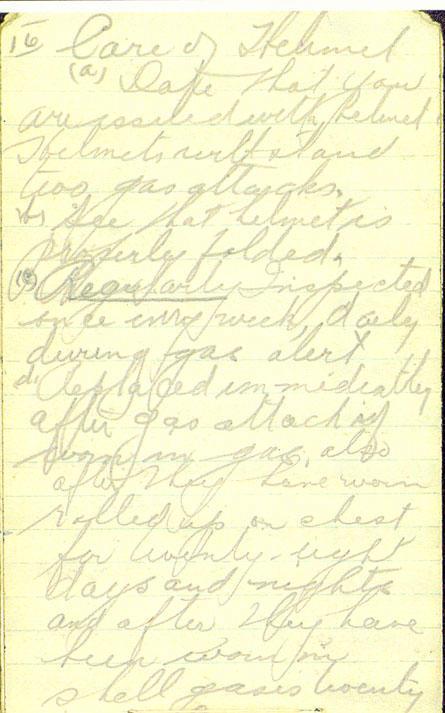 16 Care of Helmet
(a) Date that you
are issued with helmet
Helmets will stand
two gas attacks.
(b) See that helmet is
properly folded.
(c) Regularly Inspected
once every week, daily
during gas alert
d. Replaced immediatly
after gas attack if
worn in gas, also
after they have worn
rolled up on chest
for twenty-eight
days and nights
and after they have
been worn in
shell gases twenty